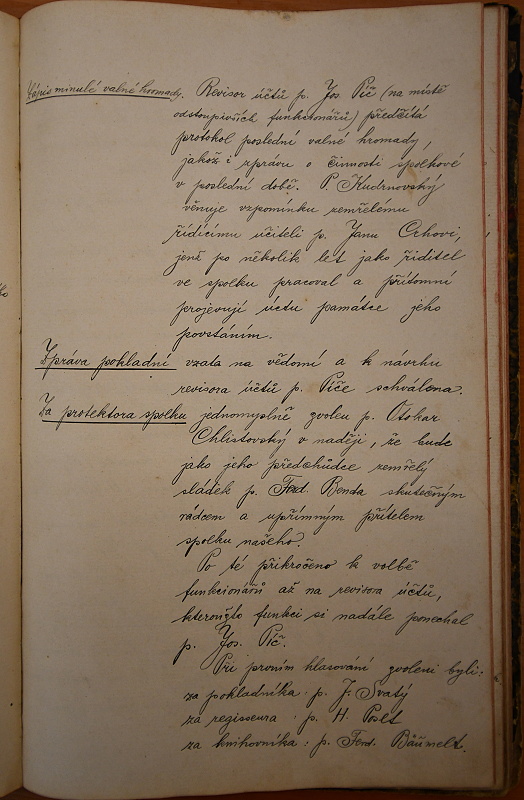 Zápis minulé valné hromady. Revisor účtů p. Jos. Píč (na místě
odstoupivších funkcionářů) předčítá
protokol poslední valné hromady,
jakož i zprávu o činnosti spolkové
v poslední době. P. Kudrnovský
věnuje vzpomínku zemřelému
řídícímu učiteli p. Janu Crhovi,
jenž po několik let jako řiditel
ve spolku pracoval a přítomní
projevují úctu památce jeho
povstáním.
Zpráva pokladní vzata na vědomí a k návrhu
revisora účtů p. Píče schválena.
Za protektora spolku jednomyslně zvolen p. Otokar
Chlistovský v naději, že bude
jako jeho předchůdce zemřelý
sládek p. Ferd. Benda skutečným
rádcem a upřímným přítelem
spolku našeho.
Po té přikročeno k volbě
funkcionářů až na revisora účtů,
kteroužto funkci si nadále ponechal
p. Jos. Píč.
Při prvním hlasování zvoleni byli:
za pokladníka: p. J. Svatý
za regisseura: p. H. Poslt
za knihovníka: p. Ferd. Bäumelt.